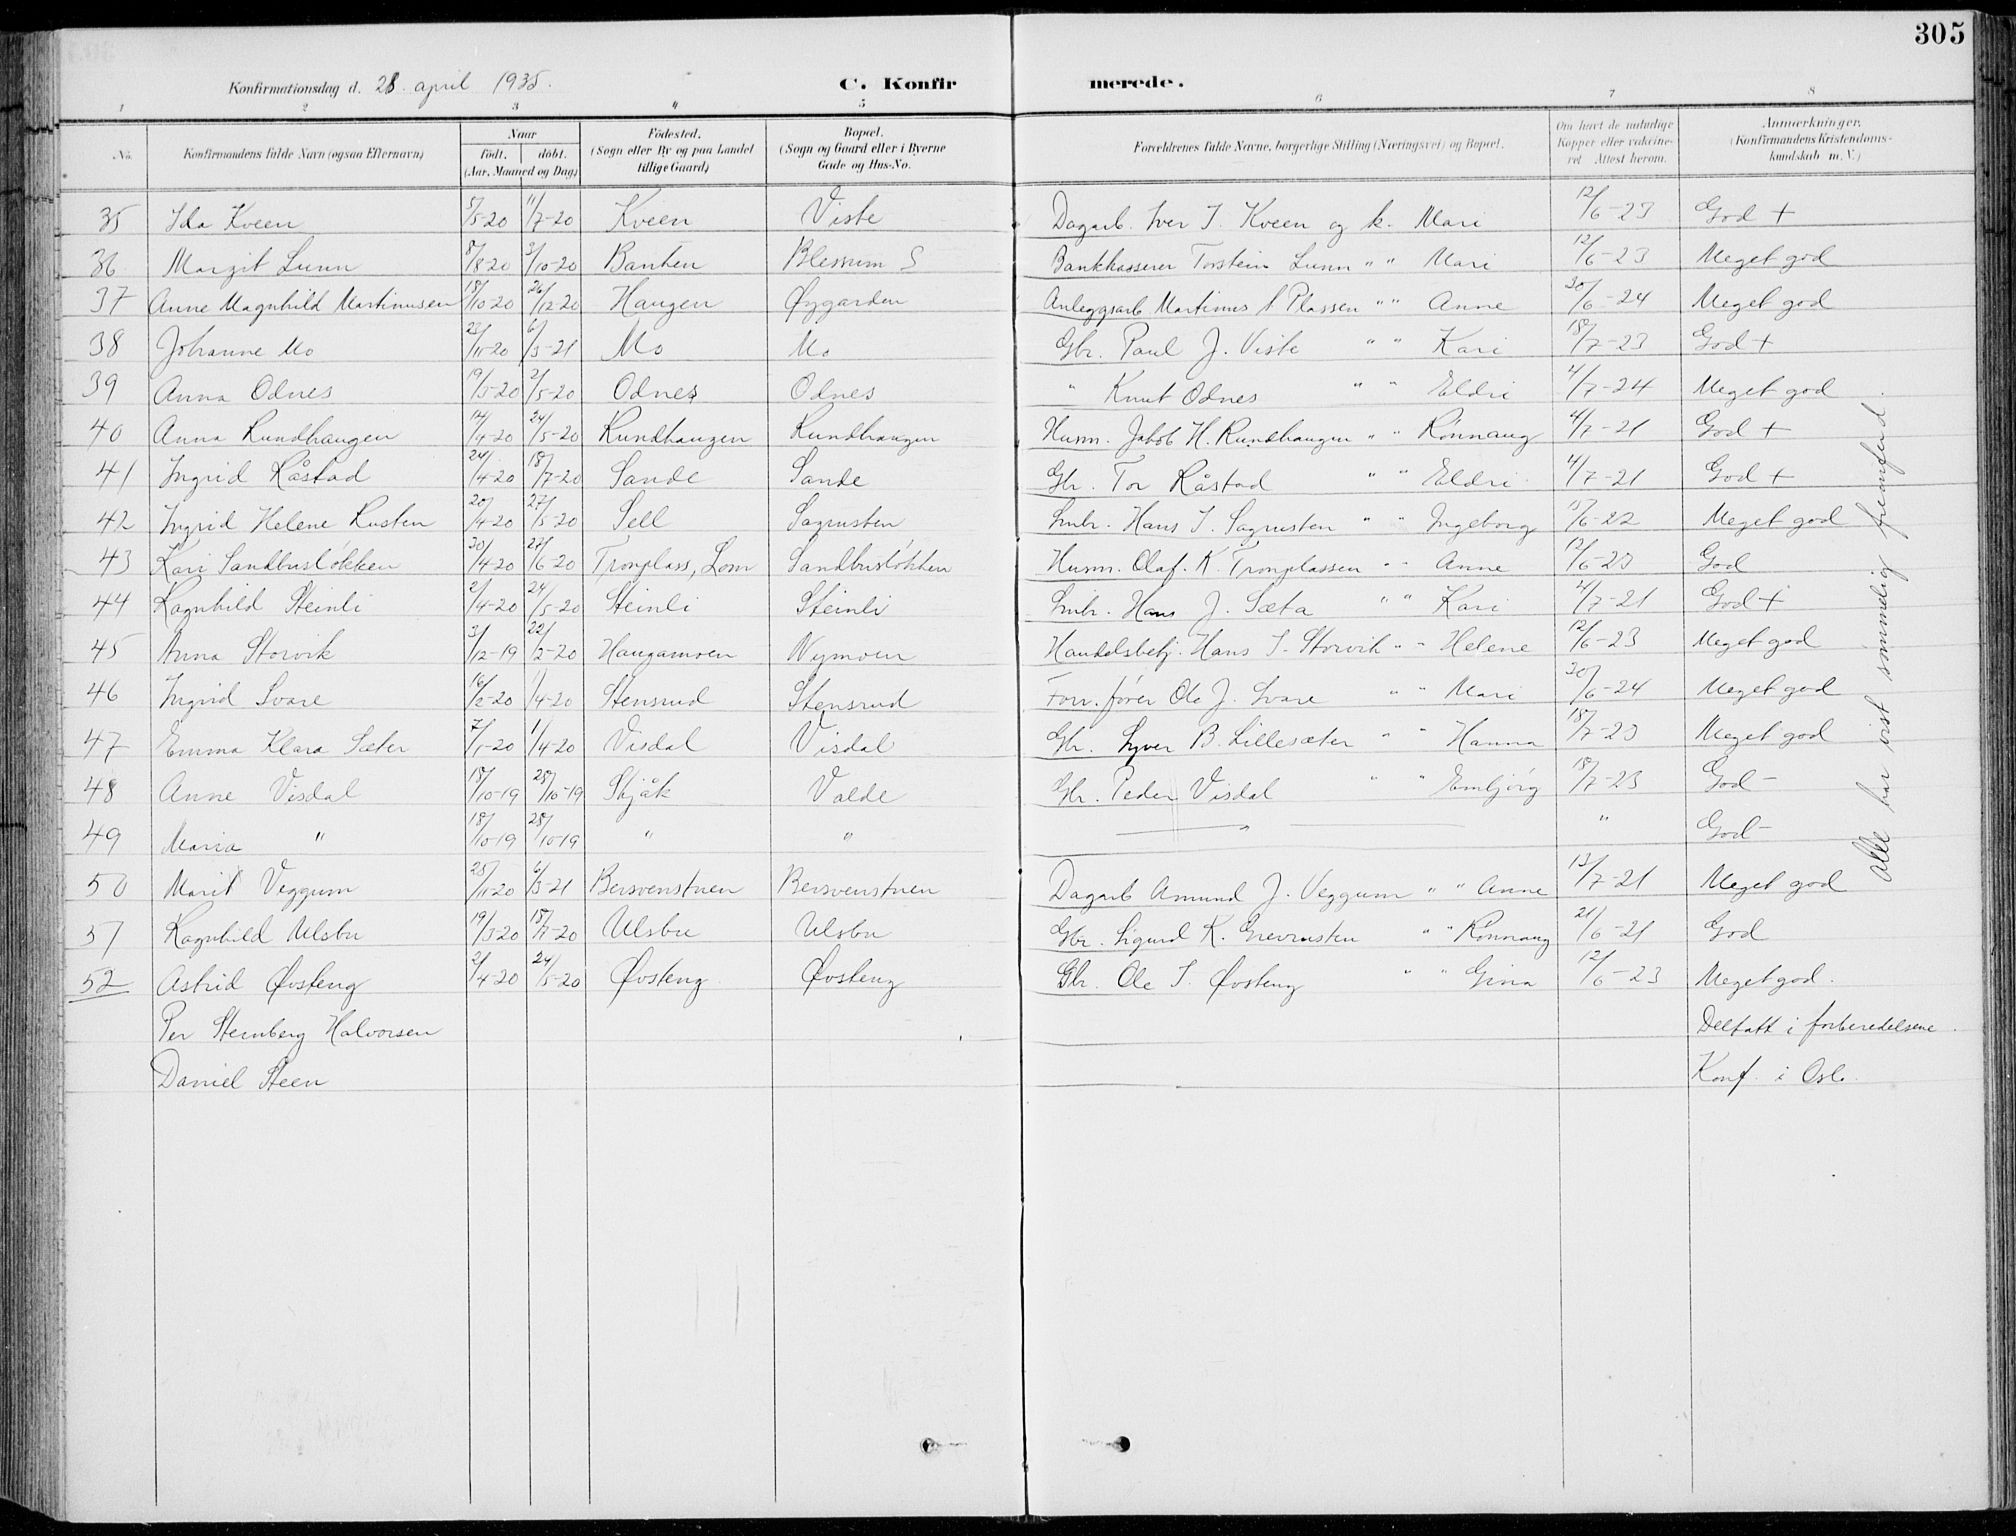 305
Konfirmationsdag d. 28. april 1935.
C. Konfirmerede.
1 2 3 4 5 6 7 8
No. Konfirmandens fulde Navn (ogsaa Efternavn) Naar födt. döbt. (Aar, Maaned og Dag) Födested. (Sogn eller By og paa Landet tillige Gaard) Bopæl. (Sogn og Gaard eller i Byerne Gade og Hus-No. Forældrenes fulde Navne, borgerlige Stilling (Næringsvei) og Bopæl. Om havt de naturlige Kopper eller vakcineret Attest herom. Anmærkninger. (Konfirmandens Kristendomskundskab m. V.)
35 Ida Kveen 5/5-20 11/7-20 Kveen Viste Dagarb. Iver I. Kveen og k. Mari 12/6-23 God +
36 Margit Lunn 8/8-20 3/10-20 Banken Blessum S Bankkasserer Torstein Lunn " " Mari 12/6-23 Meget god
37 Anne Magnhild Martinusen 18/10-20 26/12-20 Haugen Øygarden Anleggsarb Martinus Plassen " " Anne 20/6-24 Meget god
38 Johanne Mo 23/11-20 6/3-21 Mo Mo Gbr. Paul J. Viste " " Kari 18/7-23 God +
39 Anna Odnes 19/3-20 2/5-20 Odnes Odnes " Knut Odnes " " Eldri 4/7-24 Meget god
40 Anna Rundhaugen 14/4-20 24/5-20 Rundhaugen Rundhaugen Husm. Jakob H. Rundhaugen " " Rønnaug 4/7-21 God +
41 Ingrid Råstad 24/4-20 18/7-20 Sande Sande Gbr. Tor Råstad " " Eldri 4/7-21 God +
42 Ingrid Helene Rusten 20/4-20 27/5-20 Sell Sagrusten Smbr. Hans I. Sagrusten " " Ingeborg 15/6-22 Meget god
43 Kari Sandbusløkken 30/4-20 27/6-20 Tronplass, Lom Sandbusløkken Husm. Olaf. K. Tronplassen " " Anne 12/6-23 God
44 Ragnhild Steinli 2/4-20 24/5-20 Steinli Steinli Smbr. Hans J. Sæta " " Kari 4/7-21 God +
45 Anna Storvik 3/12-19 22/2-20 Haugamoen Nymoen Handelsbetj. Hans I. Storvik " " Helene 12/6-23 Meget god
46 Ingrid Svare 16/2-20 1/4-20 Stensrud Stensrud Forr. fører Ole J. Svare " " Mari 30/6-24 Meget god
47 Emma Klara Sæter 7/1-20 1/4-20 Visdal Visdal Gbr. Syver B. Lillesæter " " Hanna 18/7-23 Meget god
48 Anne Visdal 18/10-19 28/10-19 Skjåk Valde Gbr. Peder Visdal " " Embjørg 18/7-23 God -
49 Maria " 18/10-19 28/10-19 " " " " God -
50 Marit Veggum 25/11-20 6/3-21 Bersvenstuen Bersvenstuen Dagarb Amund J. Veggum " " Anne 13/7-21 Meget god
51 Ragnhild Ulsbu 19/3-20 18/7-20 Ulsbu Ulsbu Gbr. Sigurd K. Grevrusten " " Rønnaug 21/6-21 God
52 Astrid Øvsteng 2/4-20 24/5-20 Øvsteng Øvsteng Gbr. Ole I. Øvsteng " " Gina 12/6-23 Meget god.
Per Steinberg Halvorsen Deltatt i forberedelsene.
Daniel Steen Konf. i Oslo.
Alle har vist sømmelig fremferd.